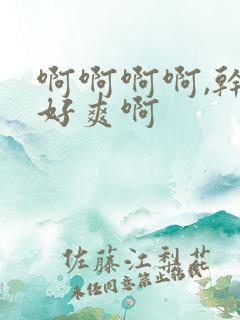 啊啊啊啊,幹
好爽啊
佐藤江梨花
未任同意禁止转载